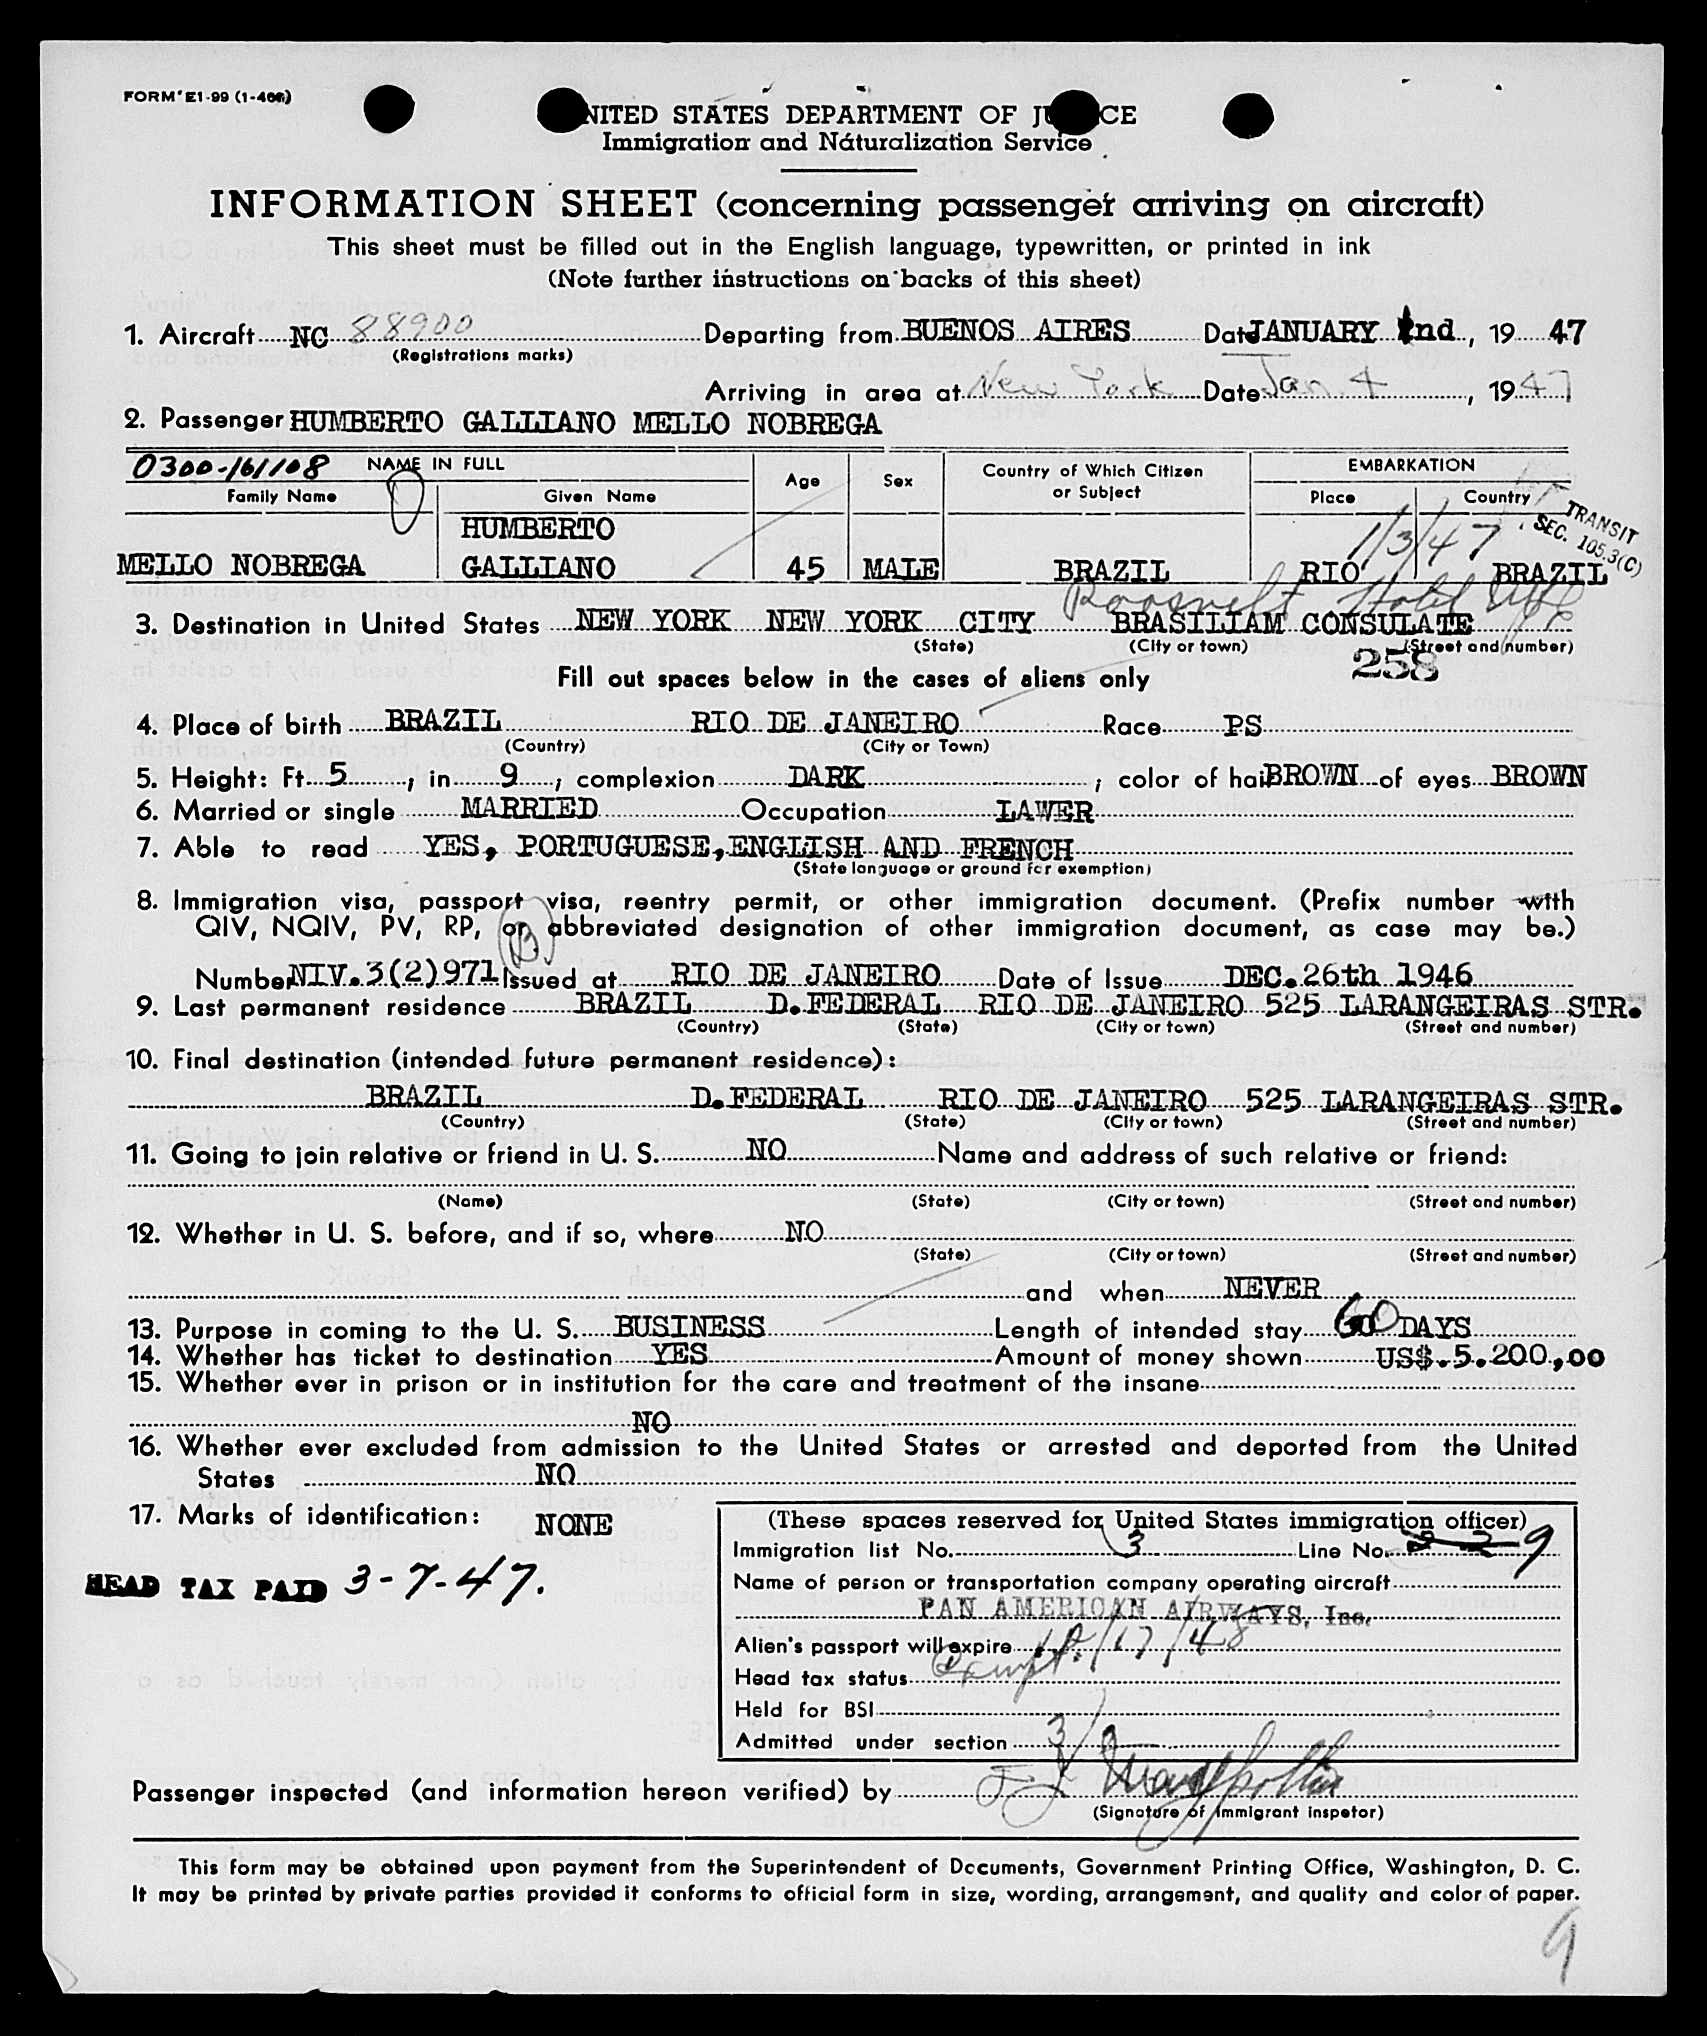 FORM E1-99 (1-46)
UNITED STATES DEPARTMENT OF JUSTICE
Immigration and Naturalization Service
INFORMATION SHEET (concerning passenger arriving on aircraft)
This sheet must be filled out in the English language, typewritten, or printed in ink
(Note further instructions on backs of this sheet)
1. Aircraft NC 88900 Departing from BUENOS AIRES Date JANUARY 2nd, 19 47
(Registrations marks)
Arriving in area at New York Date Jan. 4, 19 47
2. Passenger HUMBERTO GALLIANO MELLO NOBREGA
0300-161108 NAME IN FULL Age Sex Country of Which Citizen or Subject EMBARKATION
Family Name Given Name Place Country
TRANSIT
SEC. 105.3(C)
HUMBERTO 1/3/47
MELLO NOBREGA GALLIANO 45 MALE BRAZIL RIO BRAZIL
Roosevelt Hotel
3. Destination in United States NEW YORK NEW YORK CITY BRASILIAM CONSULATE
(State) (City or town) (Street and number)
258
Fill out spaces below in the cases of aliens only
4. Place of birth BRAZIL RIO DE JANEIRO Race PS
(Country) (City or Town)
5. Height: Ft. 5, in 9, complexion DARK; color of hair BROWN of eyes BROWN
6. Married or single MARRIED Occupation LAWER
7. Able to read YES, PORTUGUESE, ENGLISH AND FRENCH
(State language or ground for exemption)
8. Immigration visa, passport visa, reentry permit, or other immigration document. (Prefix number with
QIV, NQIV, PV, RP, or abbreviated designation of other immigration document, as case may be.)
(B)
Number NIV. 3(2)971 Issued at RIO DE JANEIRO Date of Issue DEC. 26th 1946
9. Last permanent residence BRAZIL D. FEDERAL RIO DE JANEIRO 525 LARANGEIRAS STR.
(Country) (State) (City or town) (Street and number)
10. Final destination (intended future permanent residence):
BRAZIL D. FEDERAL RIO DE JANEIRO 525 LARANGEIRAS STR.
(Country) (State) (City or town) (Street and number)
11. Going to join relative or friend in U. S. NO Name and address of such relative or friend:
(Name) (State) (City or town) (Street and number)
12. Whether in U. S. before, and if so, where NO
(State) (City or town) (Street and number)
and when NEVER
13. Purpose in coming to the U. S. BUSINESS Length of intended stay 60 DAYS
14. Whether has ticket to destination YES Amount of money shown US$. 5.200,00
15. Whether ever in prison or in institution for the care and treatment of the insane
NO
16. Whether ever excluded from admission to the United States or arrested and deported from the United
States NO
17. Marks of identification: NONE
HEAD TAX PAID 3-7-47.
(These spaces reserved for United States immigration officer)
Immigration list No. 3 Line No. 9
Name of person or transportation company operating aircraft
PAN AMERICAN AIRWAYS, Inc.
Alien's passport will expire 12/17/48
Head tax status Exempt
Held for BSI
Admitted under section 3/2
Passenger inspected (and information hereon verified) by
(Signature of immigrant inspetor)
This form may be obtained upon payment from the Superintendent of Documents, Government Printing Office, Washington, D. C.
It may be printed by private parties provided it conforms to official form in size, wording, arrangement, and quality and color of paper.
9